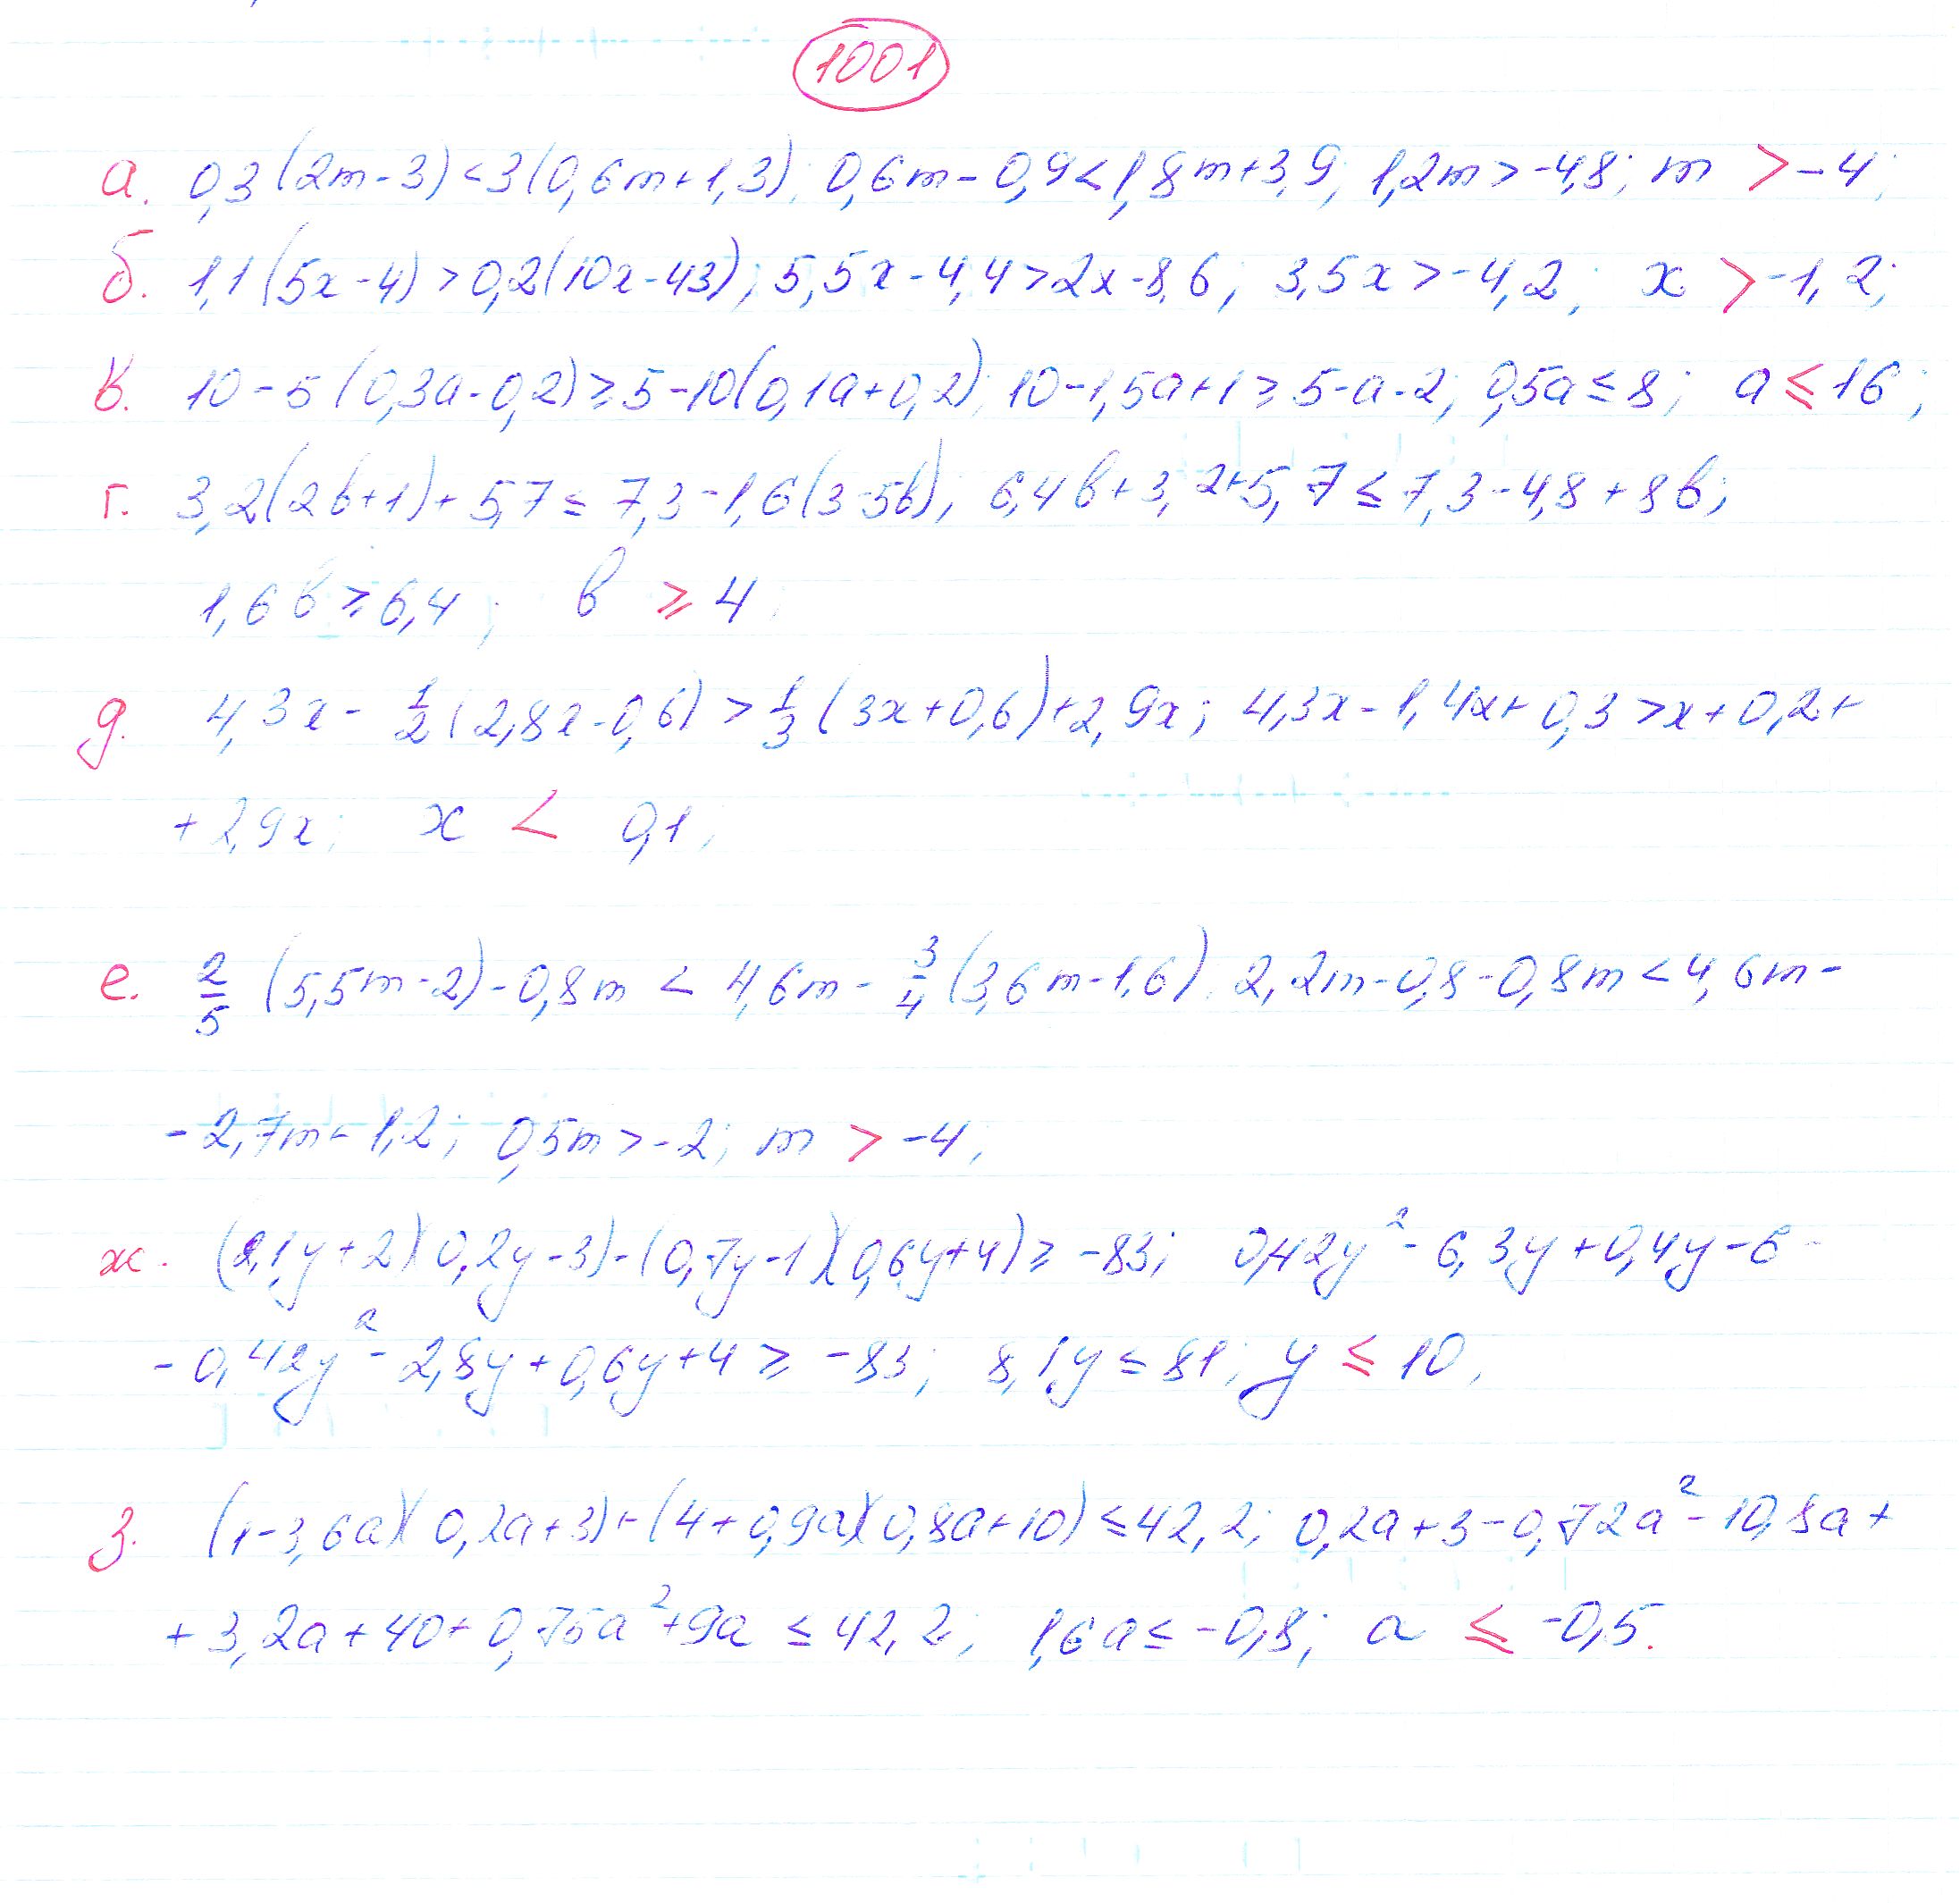 1001
а. 0,3(2m-3)<3(0,6m+1,3); 0,6m-0,9<1,8m+3,9; 1,2m>-4,8; m > -4;
б. 1,1(5x-4)>0,2(10x-43); 5,5x-4,4>2x-8,6; 3,5x>-4,2; x > -1,2;
в. 10-5(0,3a-0,2)≥5-10(0,1a+0,2); 10-1,5a+1≥5-a-2; 0,5a≤8; a ≤ 16;
г. 3,2(2b+1)+5,7≤7,3-1,6(3-5b); 6,4b+3,2+5,7≤7,3-4,8+8b;
1,6b≥6,4; b ≥ 4;
д. 4,3x-1/2(2,8x-0,6)>1/3(3x+0,6)+2,9x; 4,3x-1,4x+0,3>x+0,2+
+2,9x; x < 0,1;
е. 2/5(5,5m-2)-0,8m < 4,6m-3/4(3,6m-1,6); 2,2m-0,8-0,8m<4,6m-
-2,7m+1,2; 0,5m>-2; m > -4;
ж. (2,1y+2)(0,2y-3)-(0,7y-1)(0,6y+4)≥-83; 0,42y²-6,3y+0,4y-6-
-0,42y²-2,8y+0,6y+4≥-83; 8,1y≤81; y ≤ 10;
з. (1-3,6a)(0,2a+3)+(4+0,9a)(0,8a+10)≤42,2; 0,2a+3-0,72a²-10,8a+
+3,2a+40+0,75a²+9a≤42,2; 1,6a≤-0,8; a ≤ -0,5.